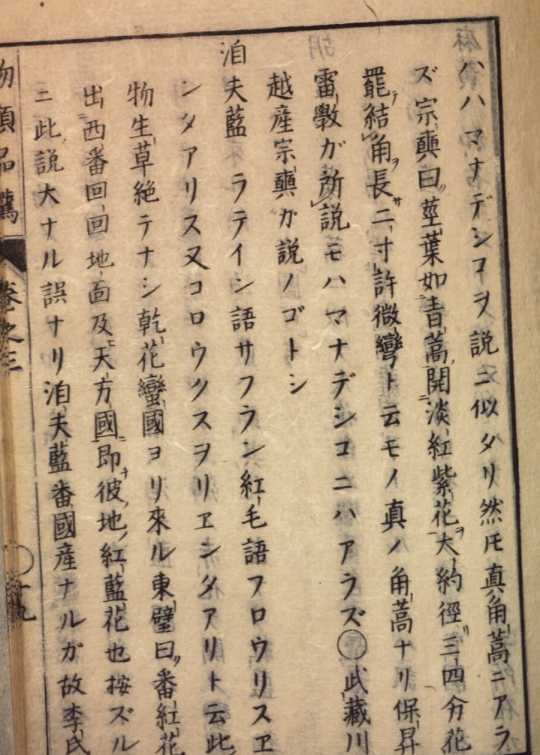 ハハマナデシコヲ説ニ似タリ然𪜈真角蒿ニアラ
ズ宗奭曰莖葉如青蒿開淡紅紫花大約徑三四分花
罷結角長二寸許微彎ト云モノ真ノ角蒿ナリ保昇
雷斅ガ所説モハマナデシコニハアラズ〇武藏川
越産宗奭ガ説ノゴトシ
洎夫藍 ラテイン語サフラン紅毛語フロウリスヱ
ンタアリス又コロウクスヲリヱンタアリト云此
物生草絶テナシ乾花蠻國ヨリ來ル東璧曰番紅花
出西番回回地面及天方國即彼地紅藍花也按ズル
ニ此説大ナル誤ナリ洎夫藍番國産ナルガ故李氏
物類品隲 卷之三 十九